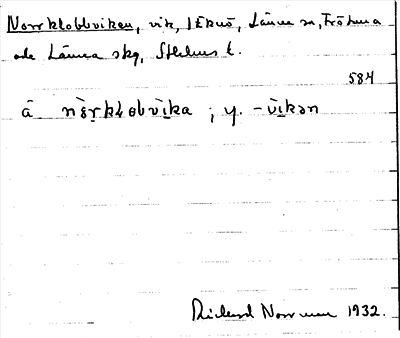 Norrklobbviken, vik, Länna sn, Frötuna
och Länna skg, Sthlms l.
584
å nò̤rklobvìka ; y. -vìkən
Richard Norrman 1932.